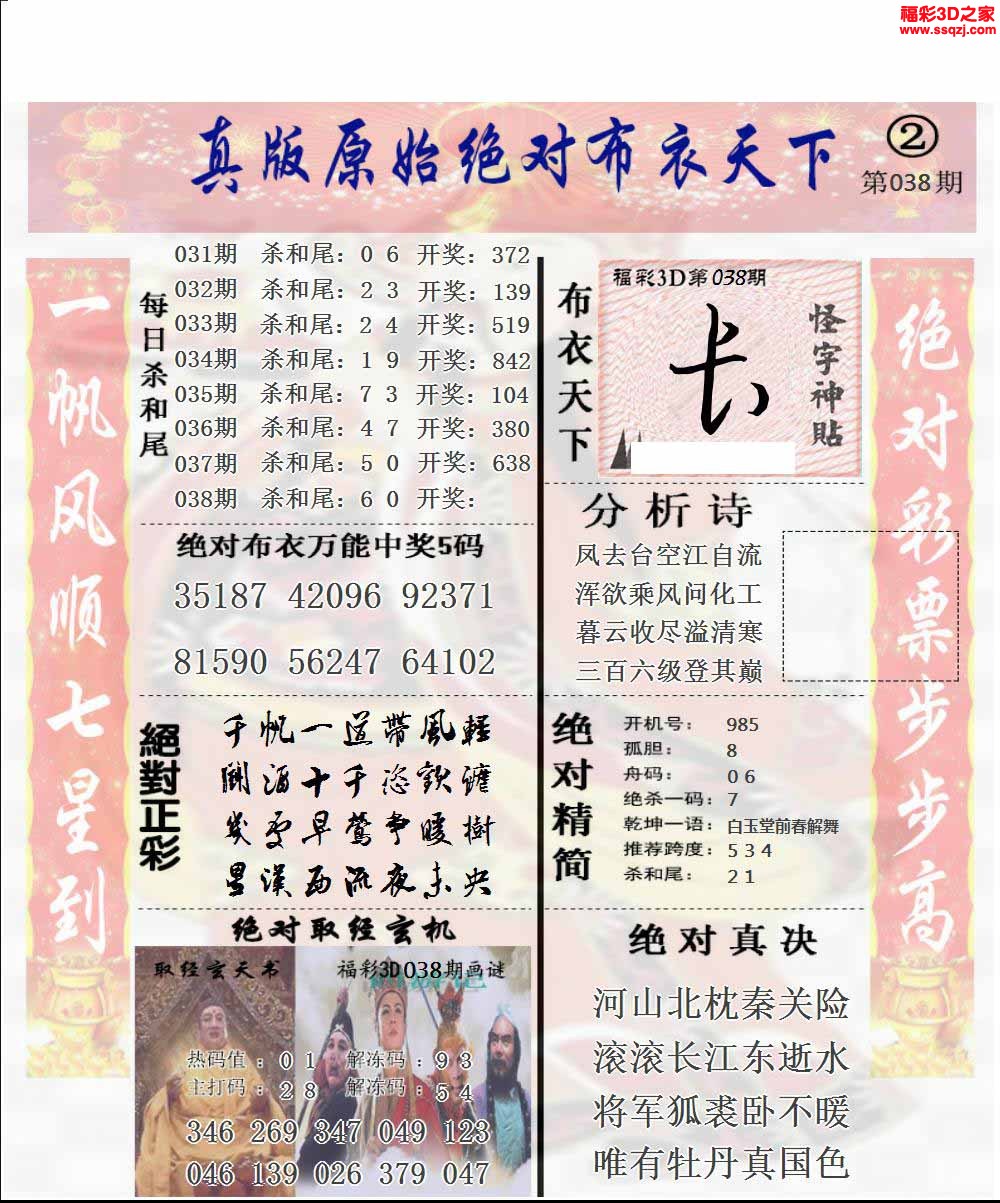 福彩3D之家
www.ssqzj.com
真版原始绝对布衣天下
②
第038期
一帆风顺七星到
每日杀和尾
031期 杀和尾：0 6 开奖：372
032期 杀和尾：2 3 开奖：139
033期 杀和尾：2 4 开奖：519
034期 杀和尾：1 9 开奖：842
035期 杀和尾：7 3 开奖：104
036期 杀和尾：4 7 开奖：380
037期 杀和尾：5 0 开奖：638
038期 杀和尾：6 0 开奖：
绝对布衣万能中奖5码
35187 42096 92371
81590 56247 64102
絕對正彩
千帆一道帶風輕
早鶯争暖樹
星漢西流夜未央
绝对取经玄机
取经玄天书
福彩3D038期画谜
热码值：0 1 解冻码：9 3
主打码：2 8 解冻码：5 4
346 269 347 049 123
046 139 026 379 047
布衣天下
福彩3D第038期
怪字神貼
分析诗
凤去台空江自流
浑欲乘风问化工
暮云收尽溢清寒
三百六级登其巅
绝对精简
开机号： 985
孤胆： 8
舟码： 0 6
绝杀一码：7
乾坤一语：白玉堂前春解舞
推荐跨度：5 3 4
杀和尾： 2 1
绝对真决
河山北枕秦关险
滚滚长江东逝水
将军狐裘卧不暖
唯有牡丹真国色
绝对彩票步步高